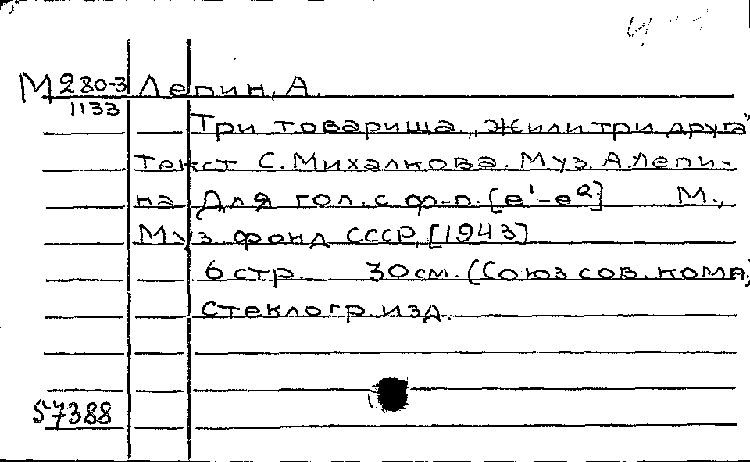 М 280-3 Лепин, А.
1133
Три товарища. „Жили три друга"
Текст С. Михалкова. Муз. А. Лепи-
на Для гол. с ф-п. [e¹-e²] М.,
Муз. фонд СССР, [1943]
6 стр. 30 см. (Союз сов. комп.)
Стеклогр. изд.
57388